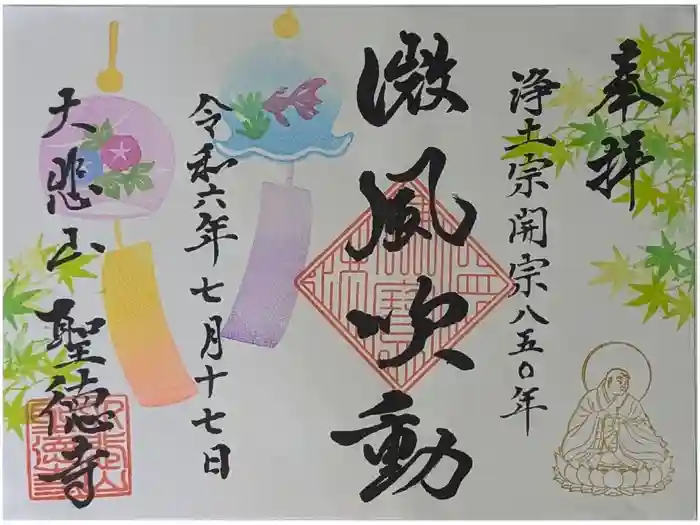 奉拝
浄土宗開宗八五〇年
微風吹動
令和六年七月十七日
大悲山 聖徳寺